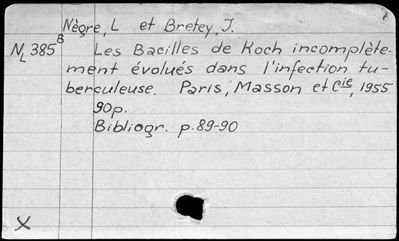 Nègre, L et Bretey, J.
NL 385 B Les Bacilles de Koch incomplète-
ment évolués dans l'infection tu-
berculeuse. Paris, Masson et Cie, 1955
90p.
Bibliogr. p.89-90
X